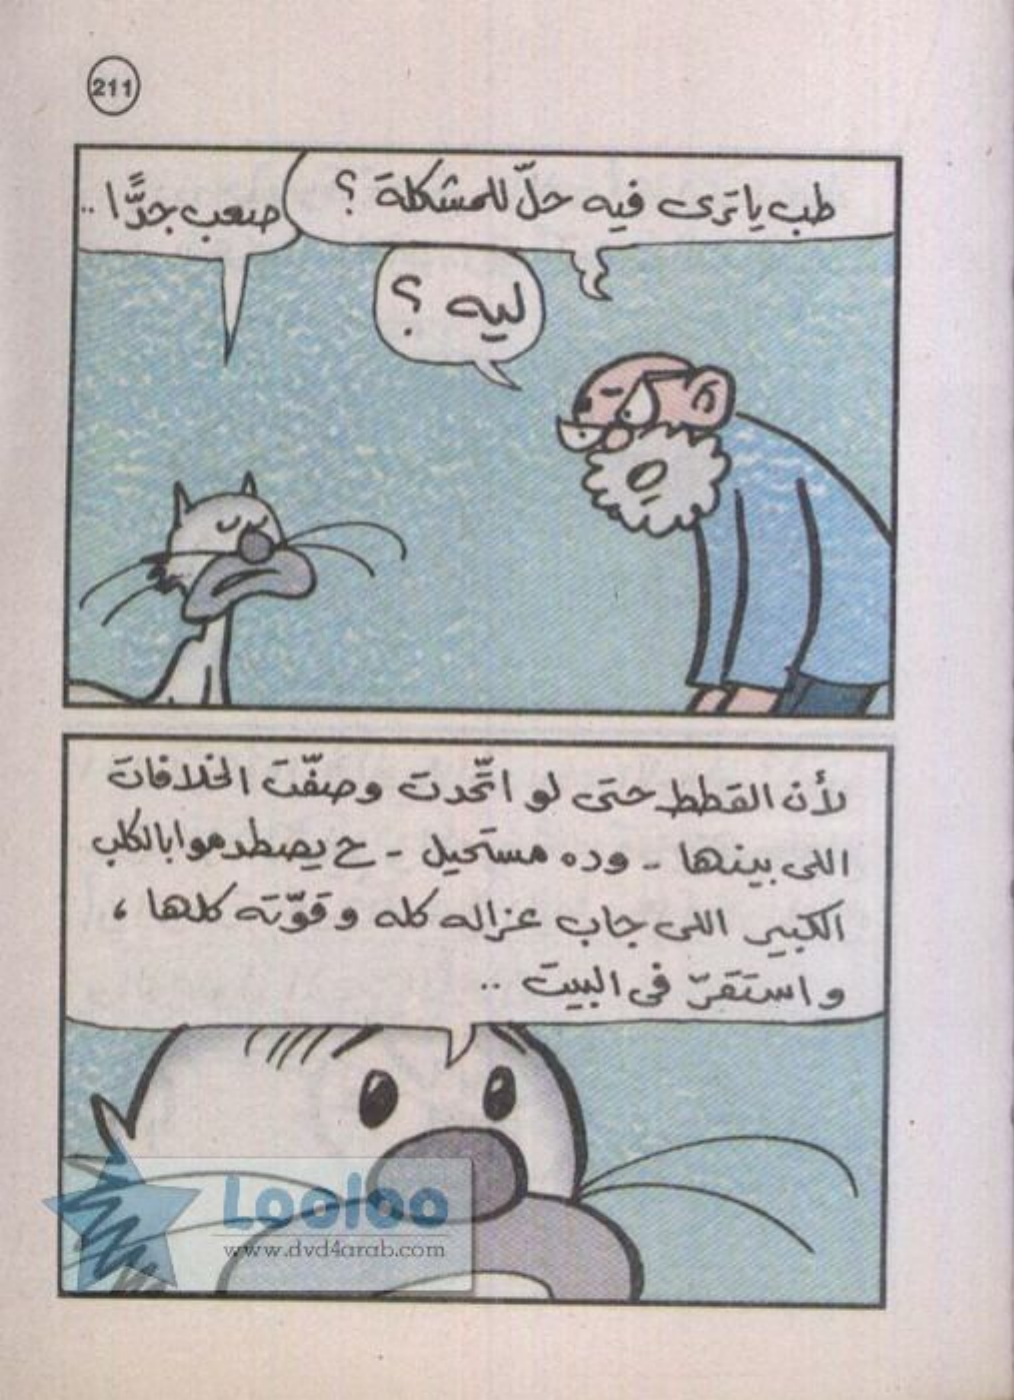 211
طب ياترى فيه حلّ للمشكلة ؟
صعب جدًّا ..
ليه ؟
لأن القطط حتى لو اتّحدت وصفّت الخلافات
اللى بينها - وده مستحيل - ح يصطدموا بالكلب
الكبير اللى جاب عزاله كله وقوّته كلها ،
واستقرّ فى البيت ..
Looloo
www.dvd4arab.com